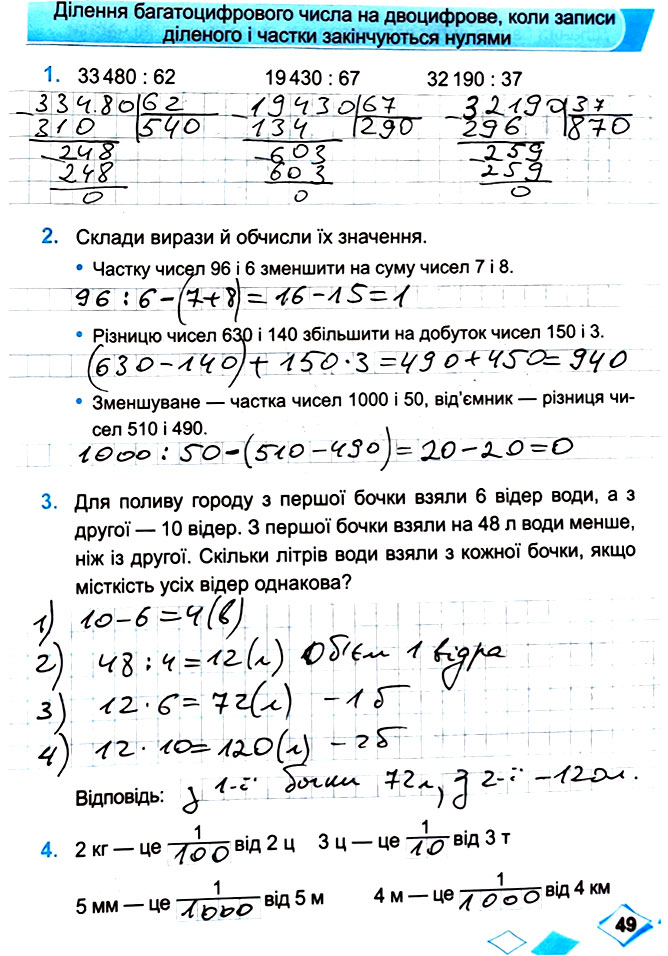 Ділення багатоцифрового числа на двоцифрове, коли записи
діленого і частки закінчуються нулями
1. 33 480 : 62 19 430 : 67 32 190 : 37
-33480 62 -19430 67 -32190 37
310 540 134 290 296 870
-248 -603 -259
248 603 259
0 0 0
2. Склади вирази й обчисли їх значення.
• Частку чисел 96 і 6 зменшити на суму чисел 7 і 8.
96 : 6 - (7+8) = 16 - 15 = 1
• Різницю чисел 630 і 140 збільшити на добуток чисел 150 і 3.
(630 - 140) + 150 · 3 = 490 + 450 = 940
• Зменшуване — частка чисел 1000 і 50, від'ємник — різниця чи-
сел 510 і 490.
1000 : 50 - (510 - 490) = 20 - 20 = 0
3. Для поливу городу з першої бочки взяли 6 відер води, а з
другої — 10 відер. З першої бочки взяли на 48 л води менше,
ніж із другої. Скільки літрів води взяли з кожної бочки, якщо
місткість усіх відер однакова?
1) 10 - 6 = 4 (в)
2) 48 : 4 = 12 (л) Об'єм 1 відра
3) 12 · 6 = 72 (л) - 1 б
4) 12 · 10 = 120 (л) - 2б
Відповідь: з 1-ї бочки 72 л, з 2-ї - 120 л.
4. 2 кг — це 1/100 від 2 ц 3 ц — це 1/10 від 3 т
5 мм — це 1/1000 від 5 м 4 м — це 1/1000 від 4 км
49